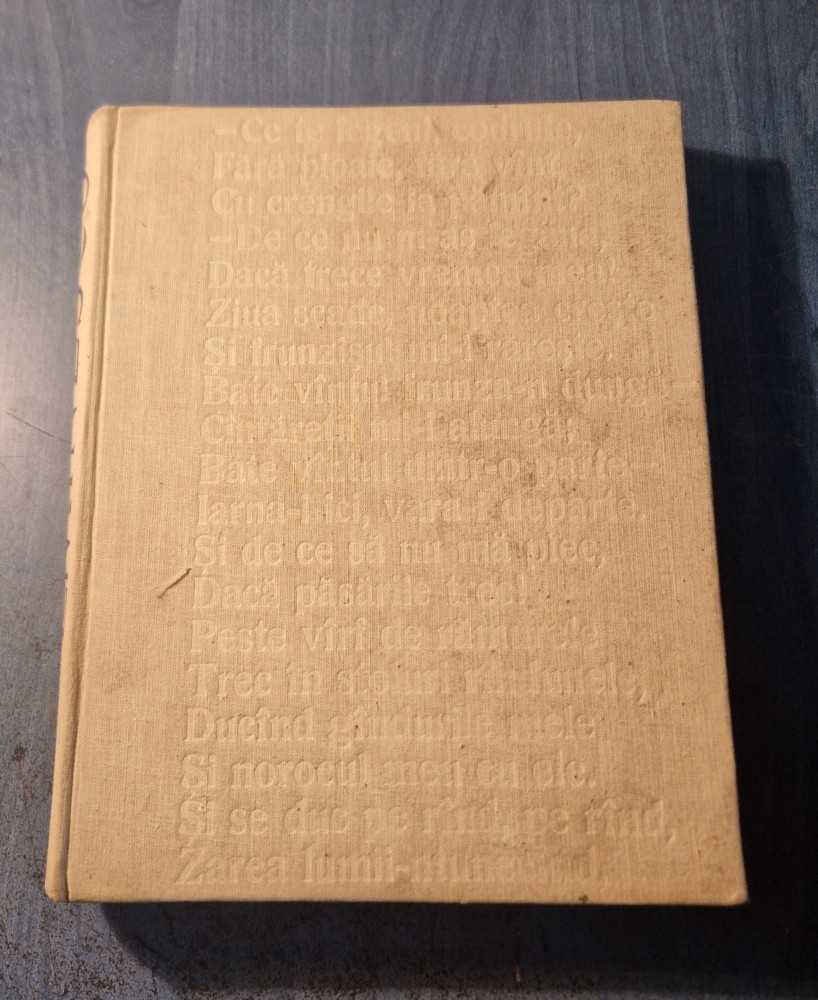 –Ce te legeni, codrule,
Fără ploaie, fără vînt,
Cu crengile la pămînt?
–De ce nu m-aș legăna,
Dacă trece vremea mea!
Ziua scade, noaptea crește
Și frunzișul mi-l rărește.
Bate vîntul frunza-n dungă–
Cîntăreții mi-i alungă;
Bate vîntul dintr-o parte–
Iarna-i ici, vara-i departe.
Și de ce să nu mă plec,
Dacă păsările trec!
Peste vîrf de rămurele
Trec în stoluri rîndunele,
Ducînd gîndurile mele
Și norocul meu cu ele.
Și se duc pe rînd, pe rînd,
Zarea lumii-ntunecînd,